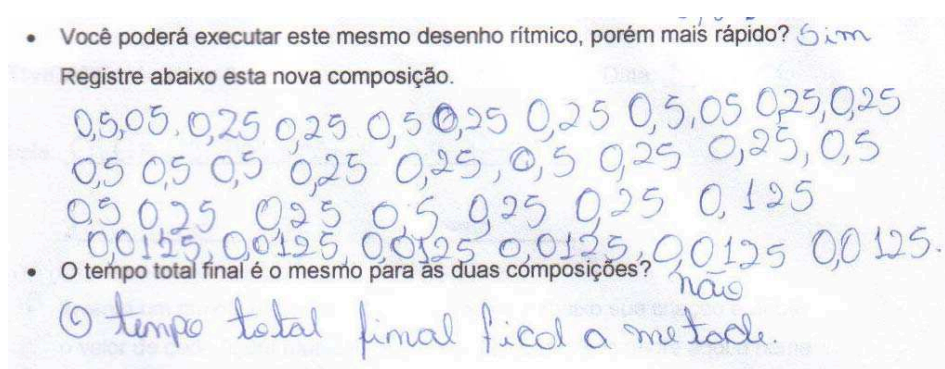 • Você poderá executar este mesmo desenho rítmico, porém mais rápido? Sim
Registre abaixo esta nova composição.
0,5,05.0,25 0,25 0,5 0,25 0,25 0,5,05 0,25,0,25
0,5 0,5 0,5 0,25 0,25, 0,5 0,25 0,25, 0,5
0,5 0,25 0,25 0,5 0,25 0,25 0,125
0,0125, 0,0125, 0,0125 0,0125, 0,0125 0,0125.
• O tempo total final é o mesmo para as duas composições?
não
O tempo total final ficol a metade.